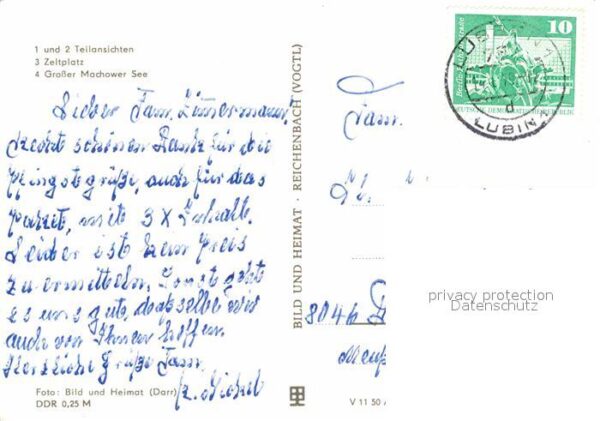 1 und 2 Teilansichten
3 Zeltplatz
4 Großer Machower See
Lieber Fam. Zimmermann!
Recht schönen Dank für die
Pfingstgrüße, auch für das
Paket, mit 3 x Inhalt.
Leider ist kein Preis
zu ermitteln. Sonst geht
es uns gut, dasselbe wir
auch von Ihnen hoffen.
Herzliche Grüße Fam.
Foto: Bild und Heimat (Darr)
DDR 0,25 M
BILD UND HEIMAT · REICHENBACH (VOGTL)
10
Berlin,
DEUTSCHE DEMOKRATISCHE REPUBLIK
LÜBBEN
LUBIN
d
Fam.
8046
privacy protection
Datenschutz
V 11 50